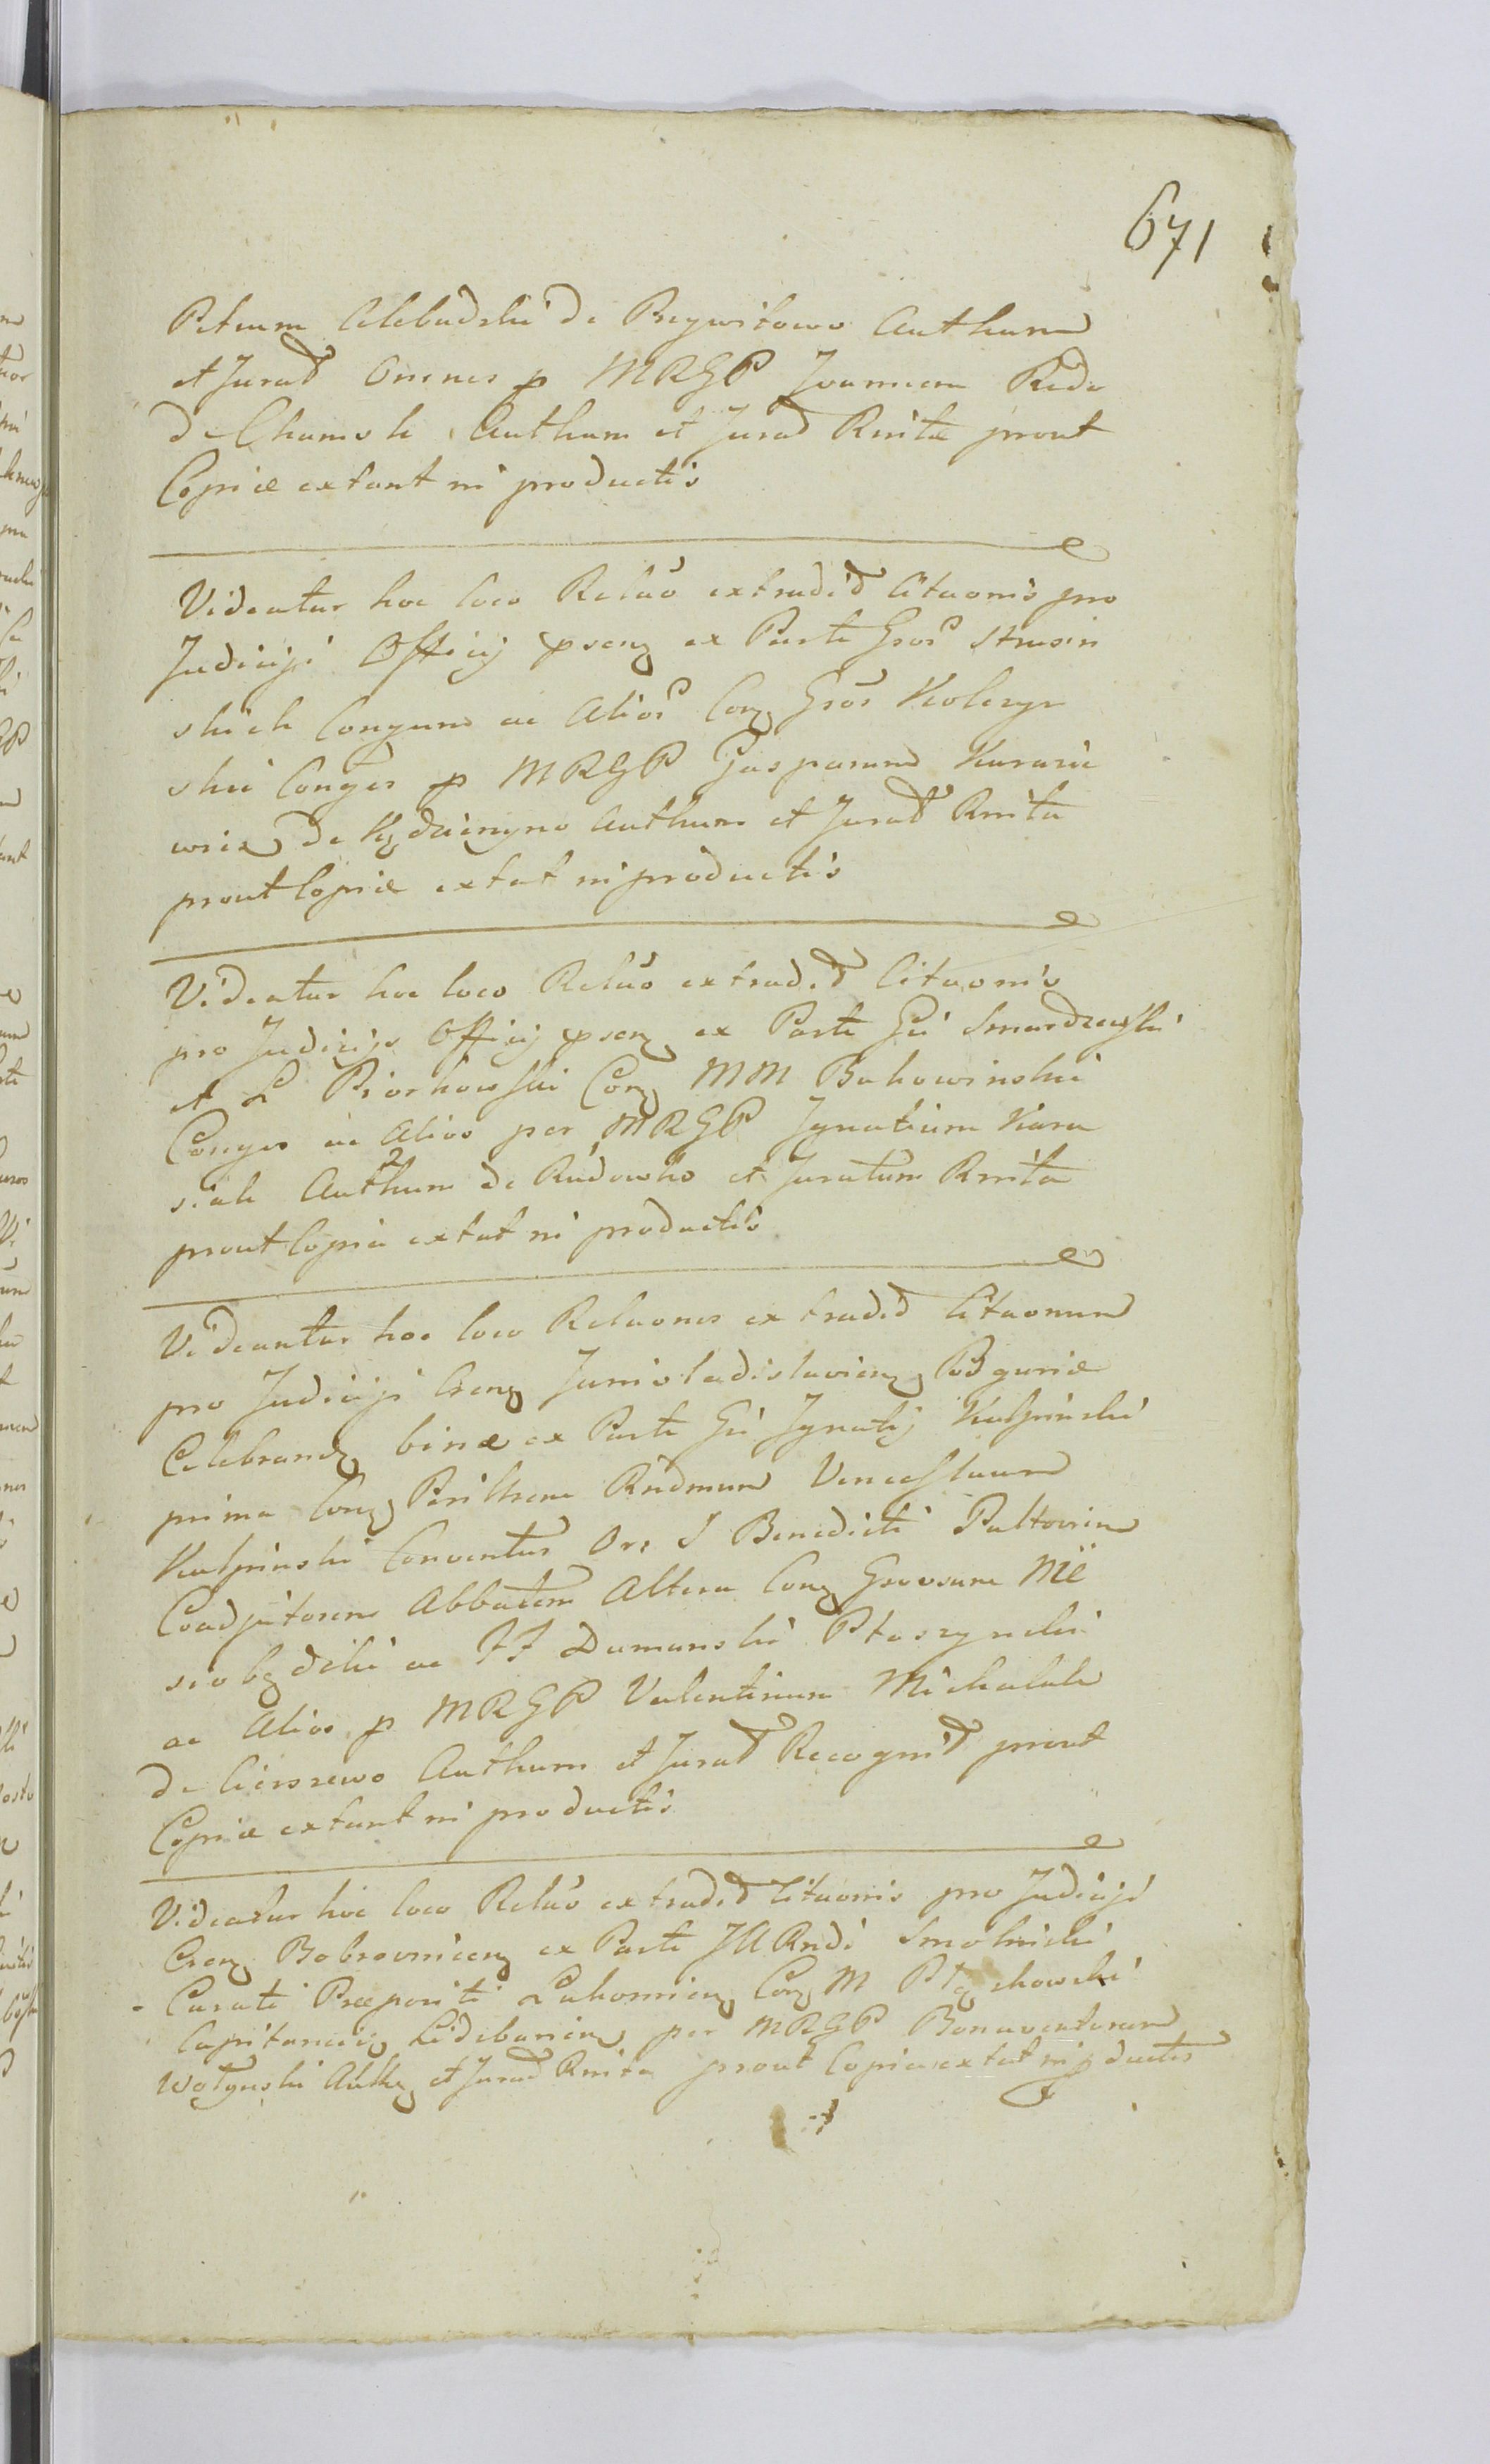 671
Petrum Celebudzki de Brzywilowo Authum
et Jurat Omnes p MRGP Joannem Reda
de Chamsk Authum et Jurat Rnitæ prout
Copiæ extant in productis
Videatur hoc loco Relao extradid Citaonis pro
Judicijs Officij psenz ex Parte Gros Strusin
skich Conjgum ac Alios Conz Gros Kolczyn
skie Conges p MRGP Gasparum
de Authum et Jurat Rnita
prout Copiæ extat in productis
Videatur hoc loco Relao extradid Citaonis
pro Judicijs Officij psenz ex Parte Gsi Smardzewski
et L Piorkowski Conz MM Bukowinskie
Conges ac Alios per MRGP Ignatium Kura
siak Authum de Rudowko et Juratum Rnita
prout Copia extat in productis
Videantur hoc loco Relaones extradid Citaonum
pro Judicijs Crenz Juniuladislaviens Podgoriæ
Celebrand binæ ex Parte Gsi Ignatij Kulpinski
prima Conz Perillrem Rndmum Venceslaum
Kulpinski Conventus Ors S Benedicti Pultovien
Coadjutorem Abbatem Altera Conz Grosum Nie
siobędzki ac FF Dumanski Ptaszynski
ac Alios p MRGP Valentinum Michalak
de Cierszewo Authum et Jurat Recognit prout
Copiæ extant in productis
Videatur hoc loco Relao extradid Citaonis pro Judicijs
Crenz Bobrovnicenz ex Parte Rndi Smolinski
Curati Præpositi Lukomien Conz M
Capitaneum per MRGP Bonaventuram
Wołynski Auth et Jurat Rnita prout Copia extat in pductis